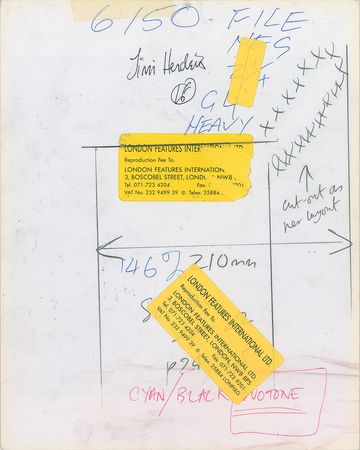 6150 FILE
NFS
Jimi Hendrix
16
HEAVY
LONDON FEATURES INTER LTD
Reproduction Fee To:
LONDON FEATURES INTERNATION
3, BOSCOBEL STREET, LONDON NW8
Tel. 071-723 4204 Fax: 9201
VAT No: 232 9499 39 Telex: 25884
cut-out as
per layout
146% 210mm
LONDON FEATURES INTERNATIONAL LTD
Reproduction Fee To:
LONDON FEATURES INTERNATIONAL LTD
3, BOSCOBEL STREET, LONDON, NW8 8PS
Tel: 071-723 4204 Fax: 071-723 9201
VAT No: 232 9499 39 Telex: 25884 LONPIXG
CYAN/BLACK DUOTONE